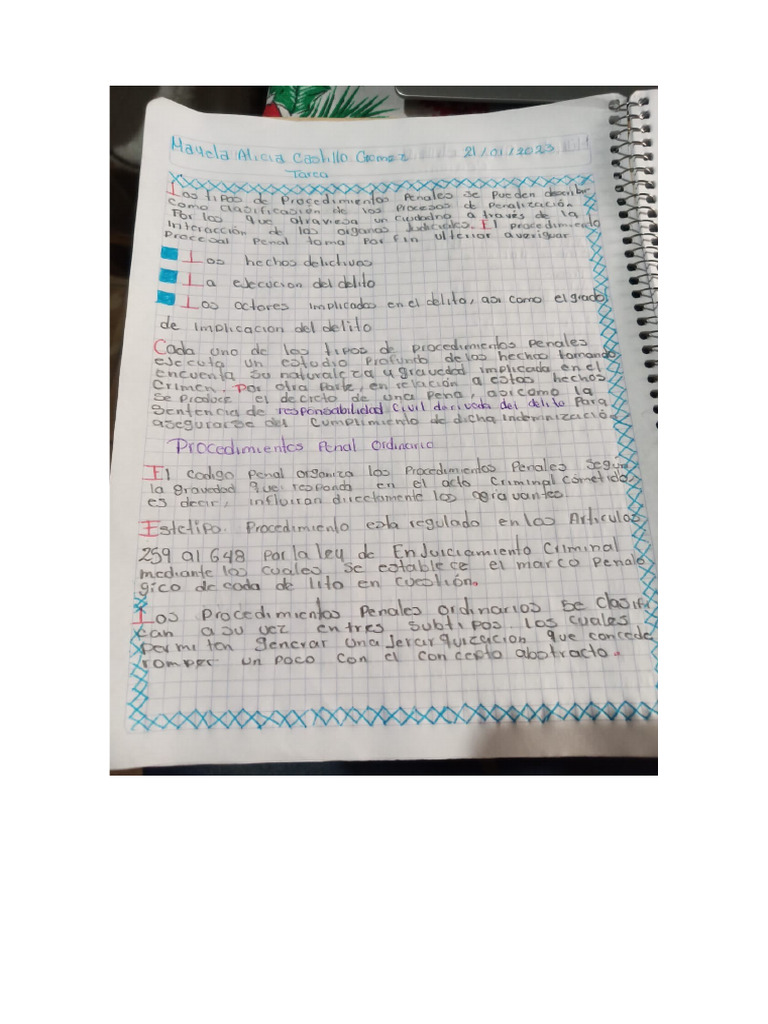 Mayela Alicia Castillo Gomez 21/01/2023
Tarea
Los tipos de Procedimientos Penales se pueden describir
como clasificasion de los Procesos de Penalización
Por los que atraviesa un ciudadno a través de la
Interacción de los organos Judiciales. El procedimiento
Procesal Penal toma por fin ulterior averiguar
Los hechos delictivos
La ejecucion del delito
Los actores implicados en el delito, asi como el grado
de implicacion del delito
Cada uno de los tipos de procedimientos Penales
ejecuta un estudio Profundo de los hechos tomando
encuenta su naturaleza y gravedad implicada en el
Crimen. Por otra Parte, en relación a estos hechos
Se produce el decreto de una Pena, asicomo la
Sentencia de responsabilidad Civil derivada del delito Para
asegurarse del Cumplimiento de dicha indemnizació
Procedimientos Penal Ordinario
El codigo Penal organiza los Procedimientos Penales según
la gravedad que responda en el acto Criminal cometido,
es decir, influiran directamente los agravantes.
Estetipo Procedimiento esta regulado en los Articulos
259 al 648 por la ley de Enjuiciamiento Criminal
mediante los cuales se estable ce el marco Penaló
gico de cada de lito en cuestión.
Los Procedimientos Penales Ordinarios se clasifi
can a su vez entres subtipos. los cuales
permiten generar una Jerarquizacion que concede
romper un poco con el concepto abstracto.